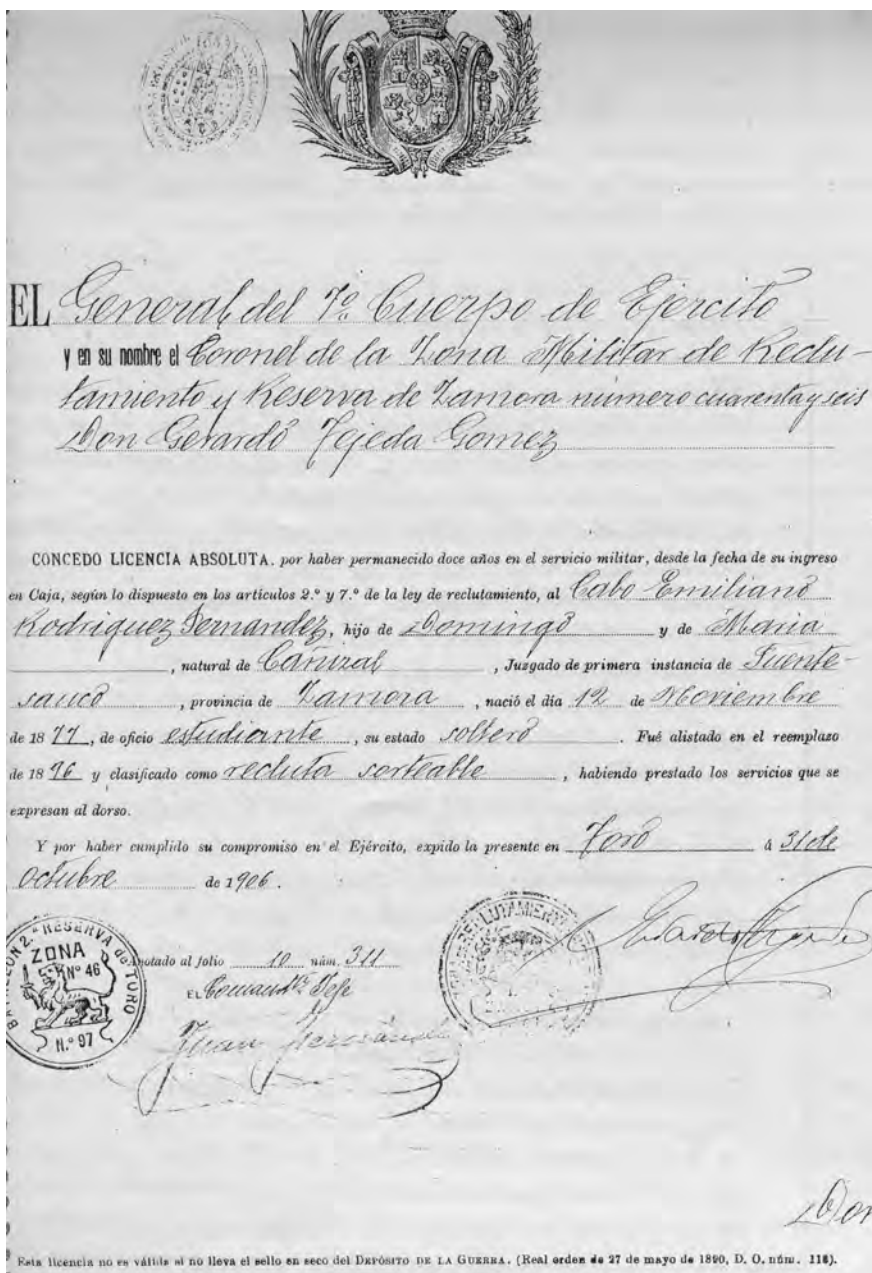 EL General del 7º Cuerpo de Ejercito
y en su nombre el Coronel de la Zona Militar de Reclu-
tamiento y Reserva de Zamora número cuarenta y seis
Don Gerardo Tejeda Gomez
CONCEDO LICENCIA ABSOLUTA, por haber permanecido doce años en el servicio militar, desde la fecha de su ingreso
en Caja, según lo dispuesto en los artículos 2.º y 7.º de la ley de reclutamiento, al Cabo Emiliano
Rodriguez Fernandez, hijo de Domingo y de Maria
, natural de Cañizal, Juzgado de primera instancia de Fuente-
sauco, provincia de Zamora, nació el día 12 de Noviembre
de 1877, de oficio estudiante, su estado soltero. Fué alistado en el reemplazo
de 1896 y clasificado como recluta sorteable, habiendo prestado los servicios que se
expresan al dorso.
Y por haber cumplido su compromiso en el Ejército, expido la presente en Toro á 31 de
Octubre de 1906.
BATALLÓN 2.ª RESERVA de TORO
ZONA
Nº 46
N.º 97
Anotado al folio 10 núm. 311
EL Comand.te Jefe
Juan
Don
Esta licencia no es válida si no lleva el sello en seco del DEPÓSITO DE LA GUERRA. (Real orden de 27 de mayo de 1890, D. O. núm. 118).